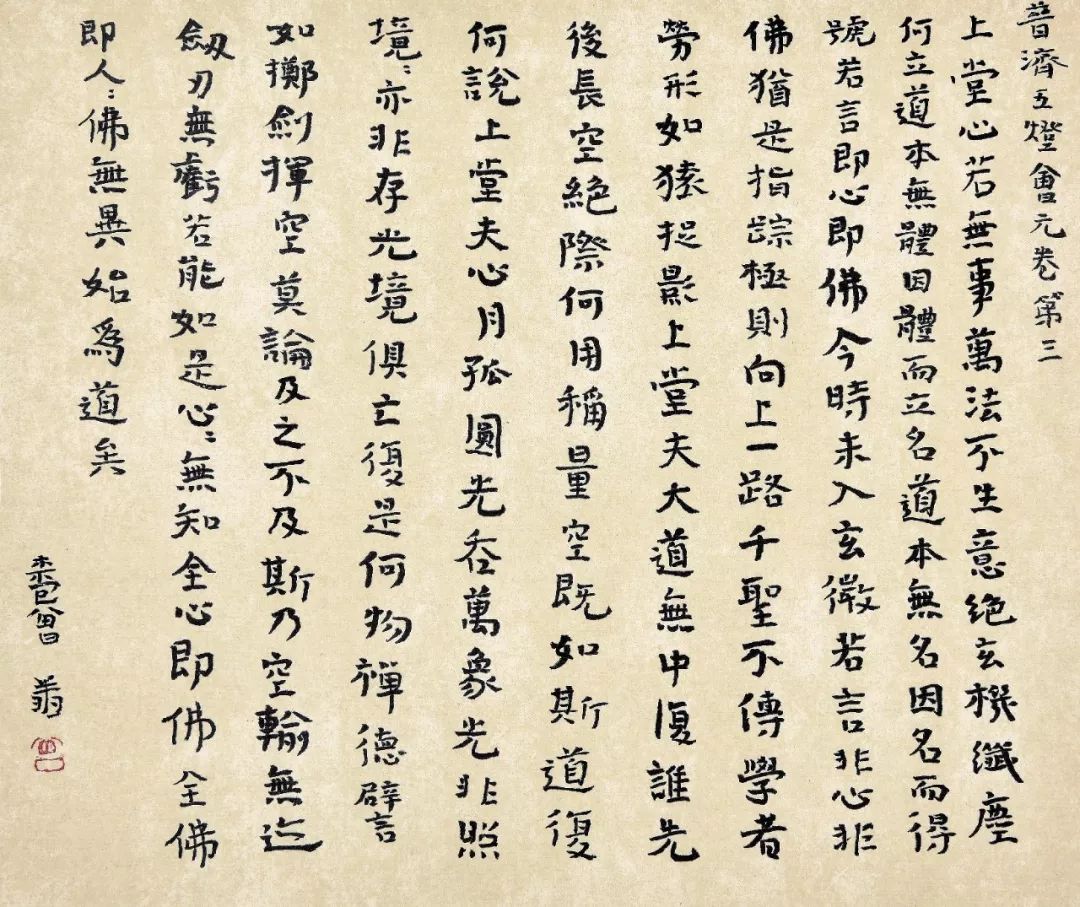 普濟五燈會元卷第三
上堂心若無事萬法不生意絕玄機纖塵
何立道本無體因體而立名道本無名因名而得
號若言即心即佛今時未入玄微若言非心非
佛猶是指蹤極則向上一路千聖不傳學者
勞形如猿捉影上堂夫大道無中復誰先
後長空絕際何用稱量空既如斯道復
何說上堂夫心月孤圓光吞萬象光非照
境〻亦非存光境俱亡復是何物禪德譬
如擲劍揮空莫論及之不及斯乃空輪無迹
劒刃無虧若能如是心〻無知全心即佛全佛
即人〻佛無異始為道矣